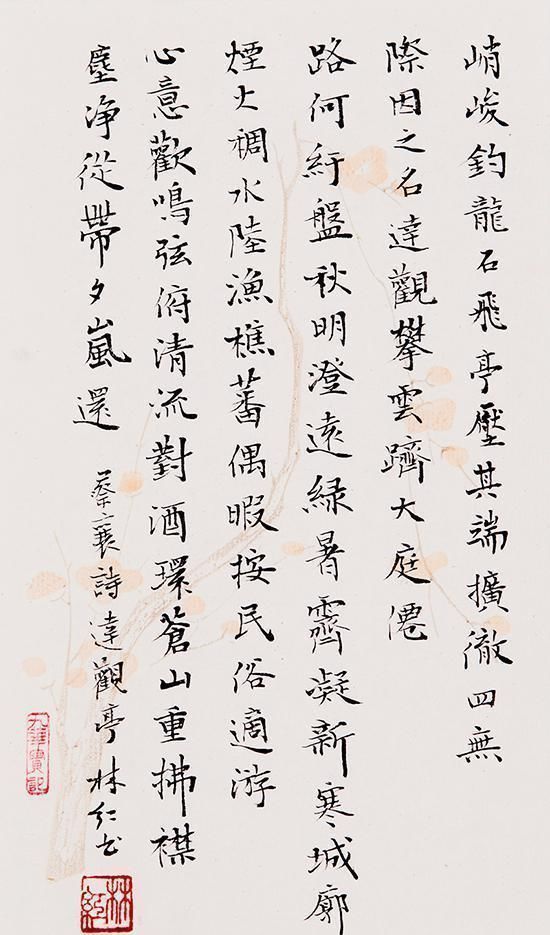 峭峻釣龍石飛亭壓其端擴徹四無
際因之名達觀攀雲躋大庭僊
路何紆盤秋明澄遠綠暑霽凝新寒城廓
煙火稠水陸漁樵蕃偶暇按民俗適游
心意歡鳴弦俯清流對酒環蒼山重拂襟
塵净從帶夕嵐還
蔡襄詩達觀亭 林仁书
林紅